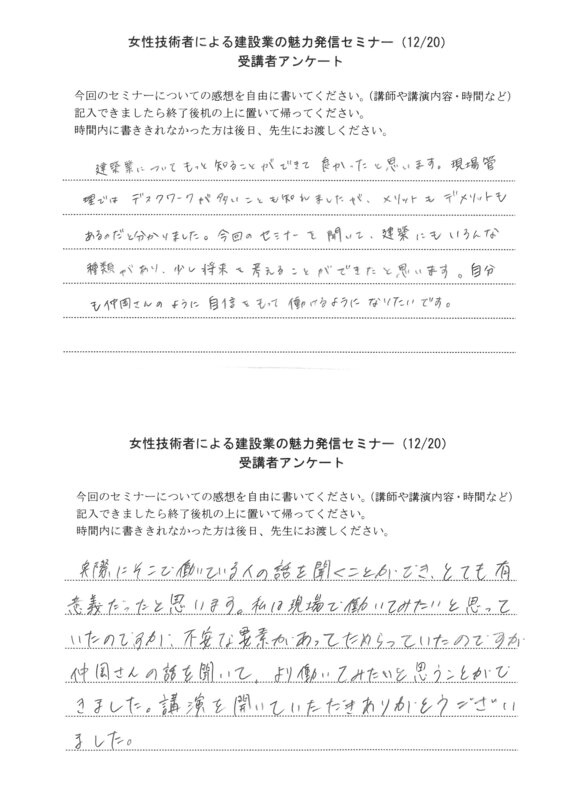 女性技術者による建設業の魅力発信セミナー（12/20）
受講者アンケート
今回のセミナーについての感想を自由に書いてください。（講師や講演内容・時間など）
記入できましたら終了後机の上に置いて帰ってください。
時間内に書ききれなかった方は後日、先生にお渡しください。
建築業についてもっと知ることができて良かったと思います。現場管
理では デスクワークが多いことも知れましたが、メリットも デメリットも
あるのだと分かりました。今回のセミナーを聞いて、建築にもいろんな
種類があり、少し将来を考えることができたと思います。自分
も仲岡さんのように自信をもって働けるようになりたいです。
女性技術者による建設業の魅力発信セミナー（12/20）
受講者アンケート
今回のセミナーについての感想を自由に書いてください。（講師や講演内容・時間など）
記入できましたら終了後机の上に置いて帰ってください。
時間内に書ききれなかった方は後日、先生にお渡しください。
実際にそこで働いている人の話を聞くことができ、とても有
意義だったと思います。私は現場で働いてみたいと思って
いたのですが、不安な要素があってためらっていたのですが
仲岡さんの話を聞いて、より働いてみたいと思うことがで
きました。講演を開いていただきありがとうござい
ました。